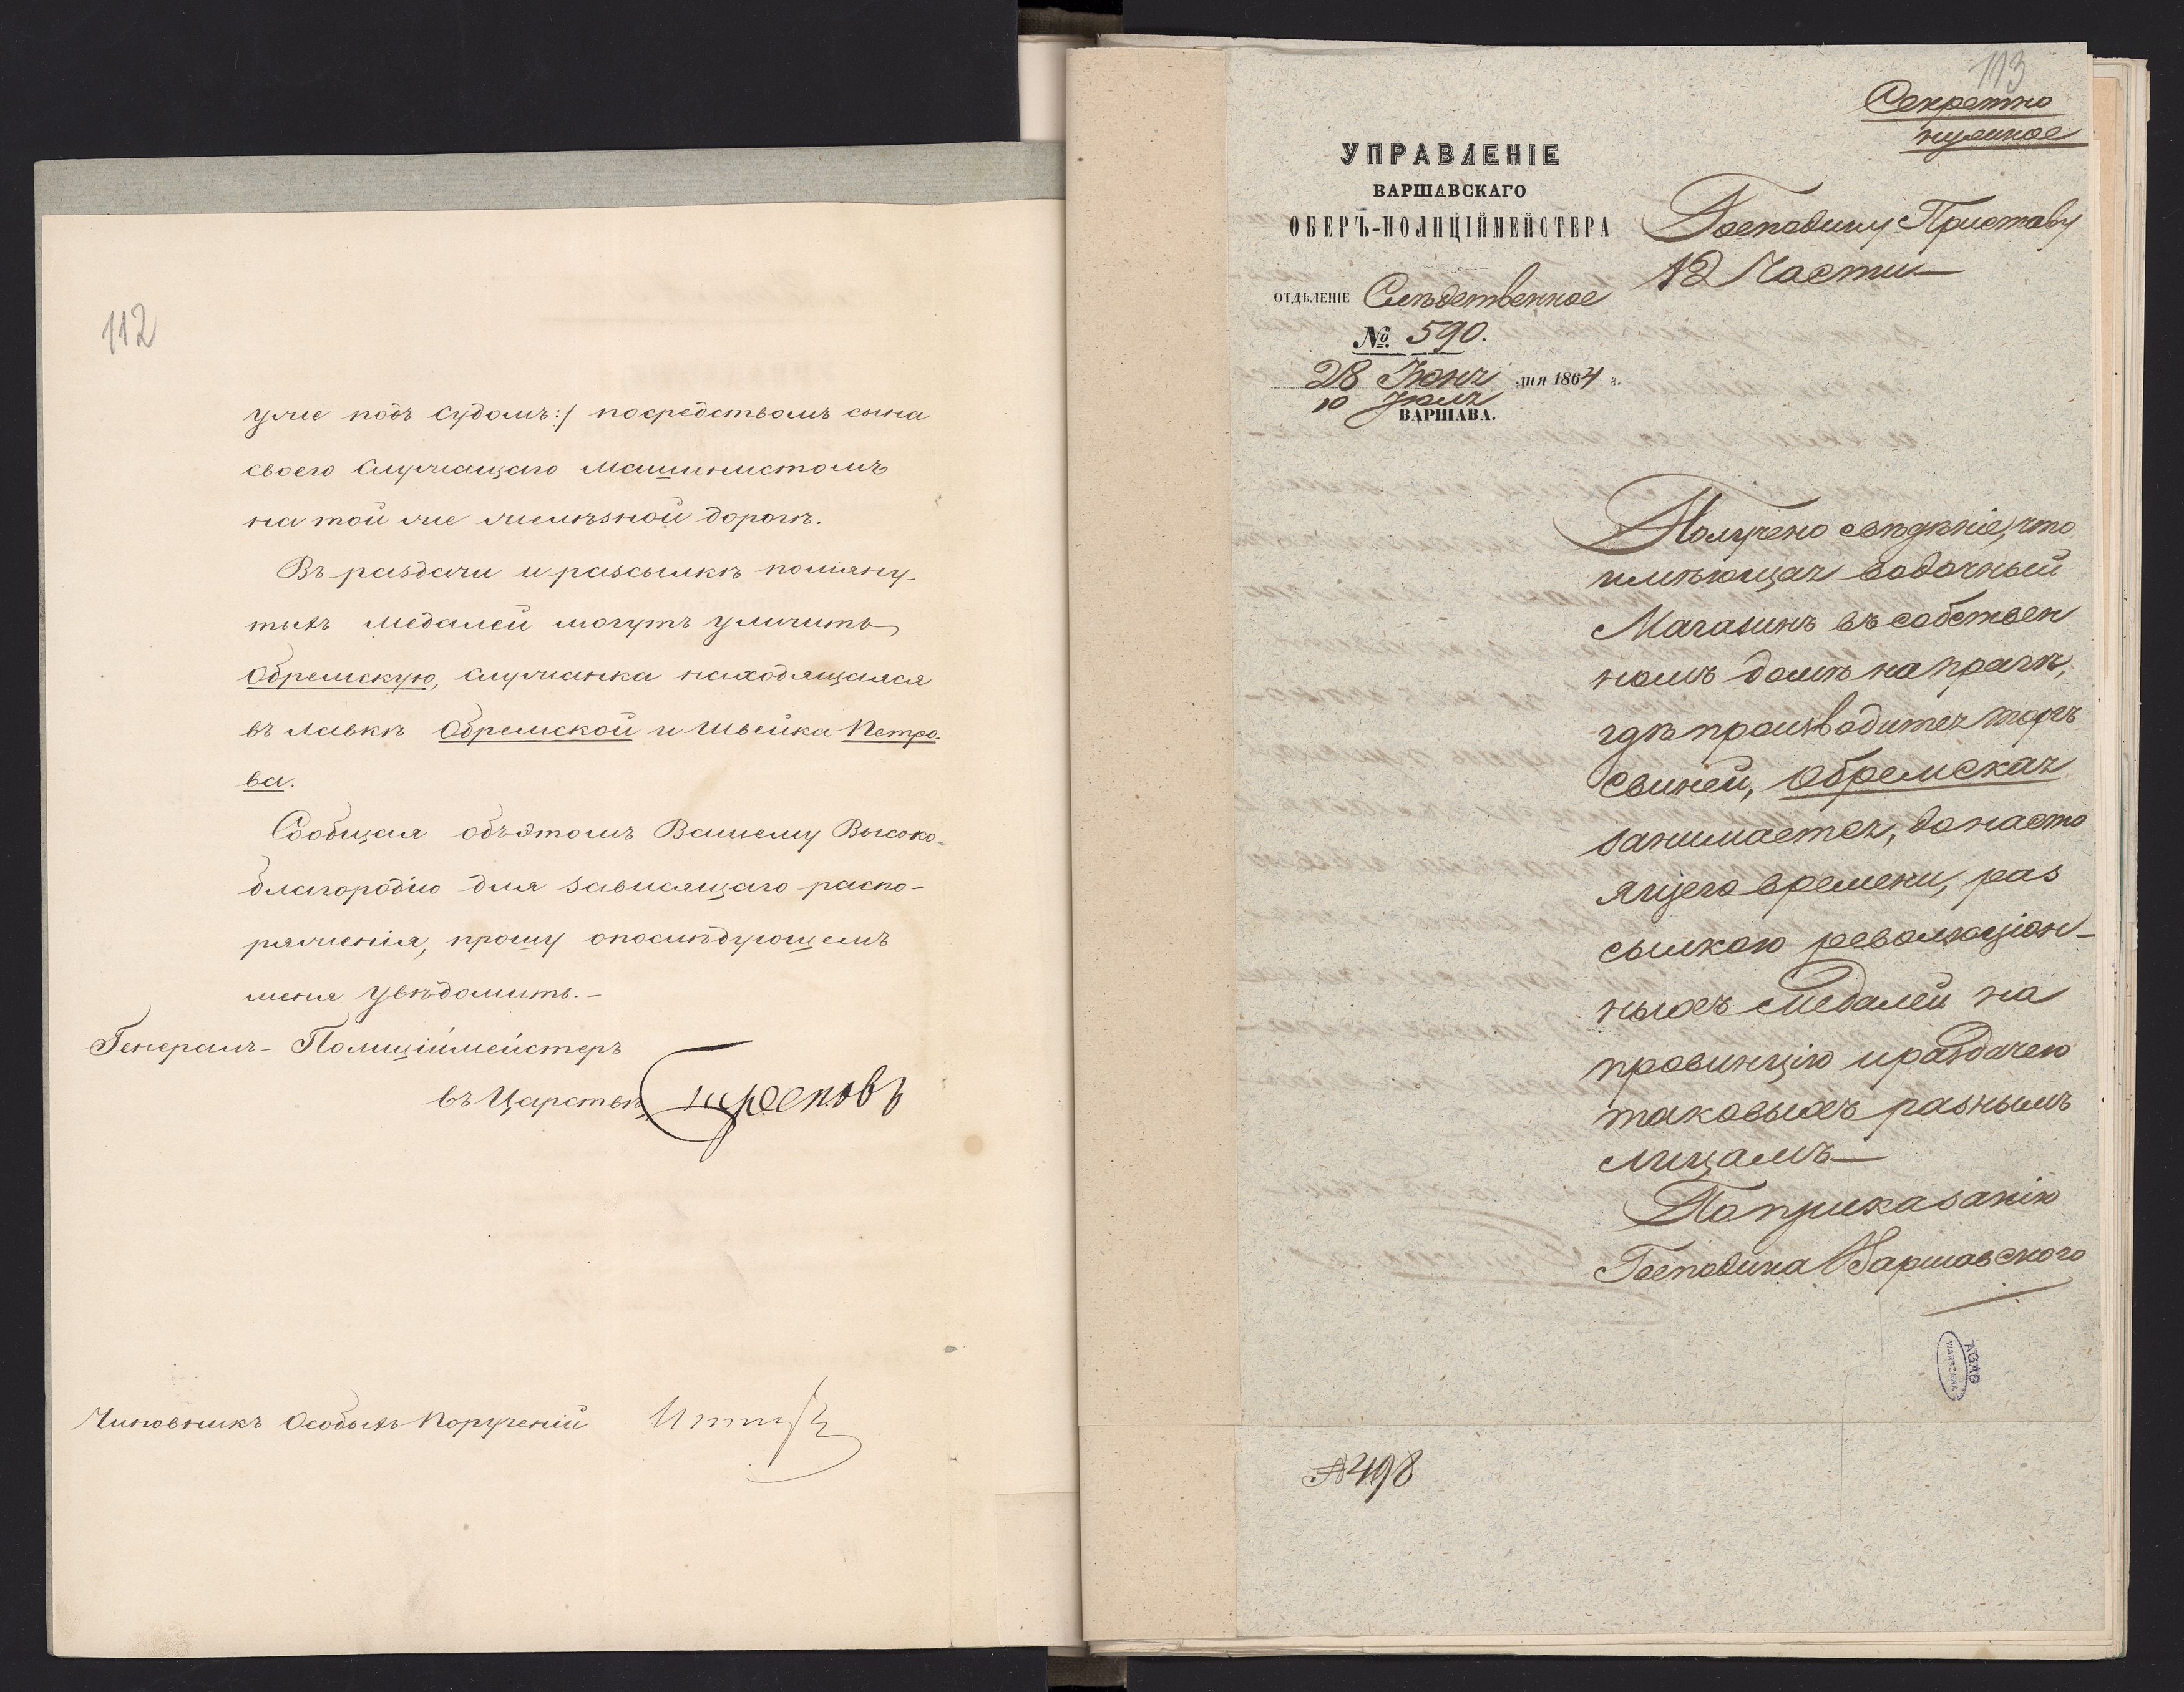 112
уже подъ судомъ:/ посредствомъ сына
своего служащаго машинистомъ
на той же желѣзной дорогѣ.
Въ раздачи и разсылкѣ помяну-
тыхъ медалей могутъ уличить
Обремскую, служанка находящаяся
въ лавкѣ Обремской и Швейка Петро-
ва.
Сообщая объ этомъ Вашему Высоко-
благородію для зависящаго распо-
ряженія, прошу о послѣдующемъ
меня увѣдомить.-
Генералъ-Полиціймейстеръ
въ Царствѣ, Треповъ
Чиновникъ Особыхъ Порученій
113
Секретно
нужное
УПРАВЛЕНІЕ
ВАРШАВСКАГО
ОБЕРЪ-ПОЛИЦІЙМЕЙСТЕРА
Господину Приставу
12 Части
ОТДѢЛЕНІЕ Слѣдственное
№ 590.
28 Іюня дня 1864 г.
10 Іюля
ВАРШАВА.
Получено свѣдѣніе, что
имѣющая водочный
Магазинъ въ собствен
номъ домѣ на прагѣ,
гдѣ производится торгъ
свиней, Обремская
занимается, до насто
ящего времени, раз
сылкою революціон-
ныхъ медалей на
провинцію и раздачею
таковыхъ разнымъ
лицамъ
По приказанію
Господина Варшавского
AGAD
WARSZAWA
№498